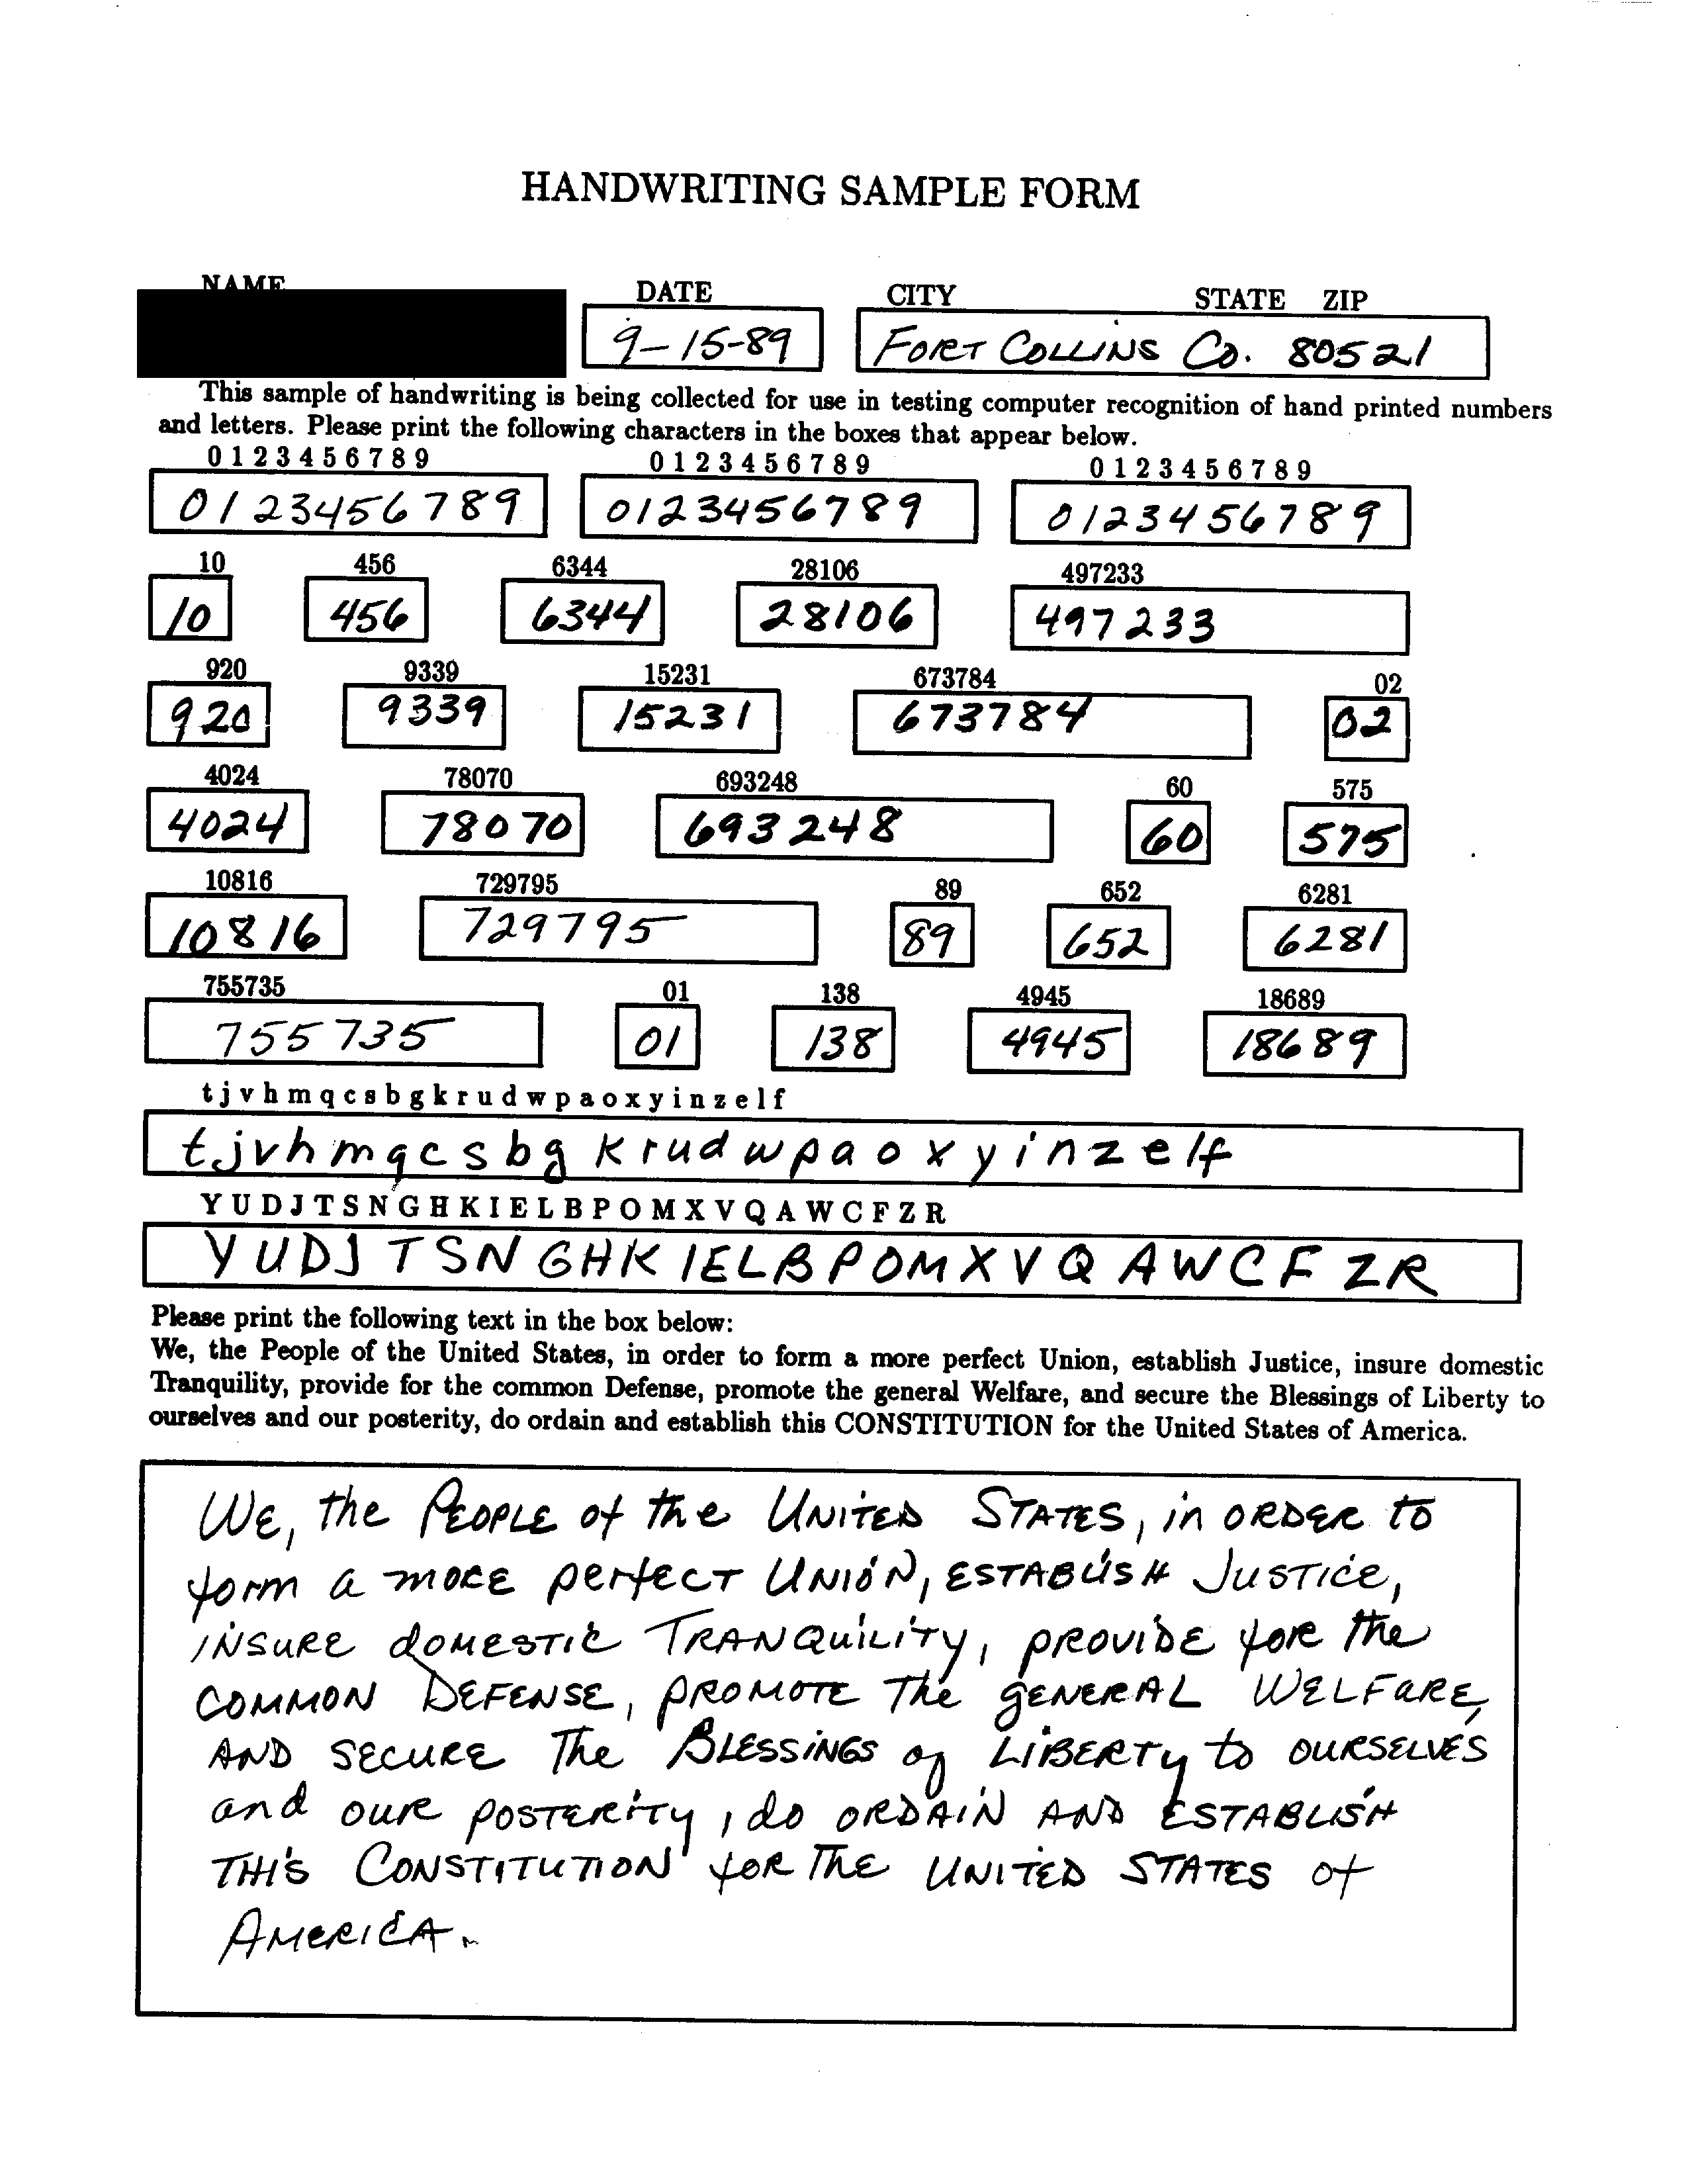 HANDWRITING SAMPLE FORM
NAME DATE CITY STATE ZIP
9-15-89 FORT COLLINS CO. 80521
This sample of handwriting is being collected for use in testing computer recognition of hand printed numbers
and letters. Please print the following characters in the boxes that appear below.
0 1 2 3 4 5 6 7 8 9 0 1 2 3 4 5 6 7 8 9 0 1 2 3 4 5 6 7 8 9
0123456789 0123456789 0123456789
10 456 6344 28106 497233
10 456 6344 28106 497233
920 9339 15231 673784 02
920 9339 15231 673784 02
4024 78070 693248 60 575
4024 78070 693248 60 575
10816 729795 89 652 6281
10816 729795 89 652 6281
755735 01 138 4945 18689
755735 01 138 4945 18689
t j v h m q c s b g k r u d w p a o x y i n z e l f
t j v h m q c s b g k r u d w p a o x y i n z e l f
Y U D J T S N G H K I E L B P O M X V Q A W C F Z R
Y U D J T S N G H K I E L B P O M X V Q A W C F Z R
Please print the following text in the box below:
We, the People of the United States, in order to form a more perfect Union, establish Justice, insure domestic
Tranquility, provide for the common Defense, promote the general Welfare, and secure the Blessings of Liberty to
ourselves and our posterity, do ordain and establish this CONSTITUTION for the United States of America.
WE, the PEOPLE of the UNITED STATES, in ORDER to
form a MORE perfECT UNION, ESTABLISH JUSTICE,
INSURE dOMESTIC TRANQUILITY, PROVIDE fOR the
COMMON DEFENSE, PROMOTE The gENERAL WELFARE,
AND SECURE The BLESSINGS of LIBERTY to OURSELVES
and OUR POSTERITY, do ORDAIN AND ESTABLISH
THIS CONSTITUTION fOR THE UNITED STATES of
AMERICA.